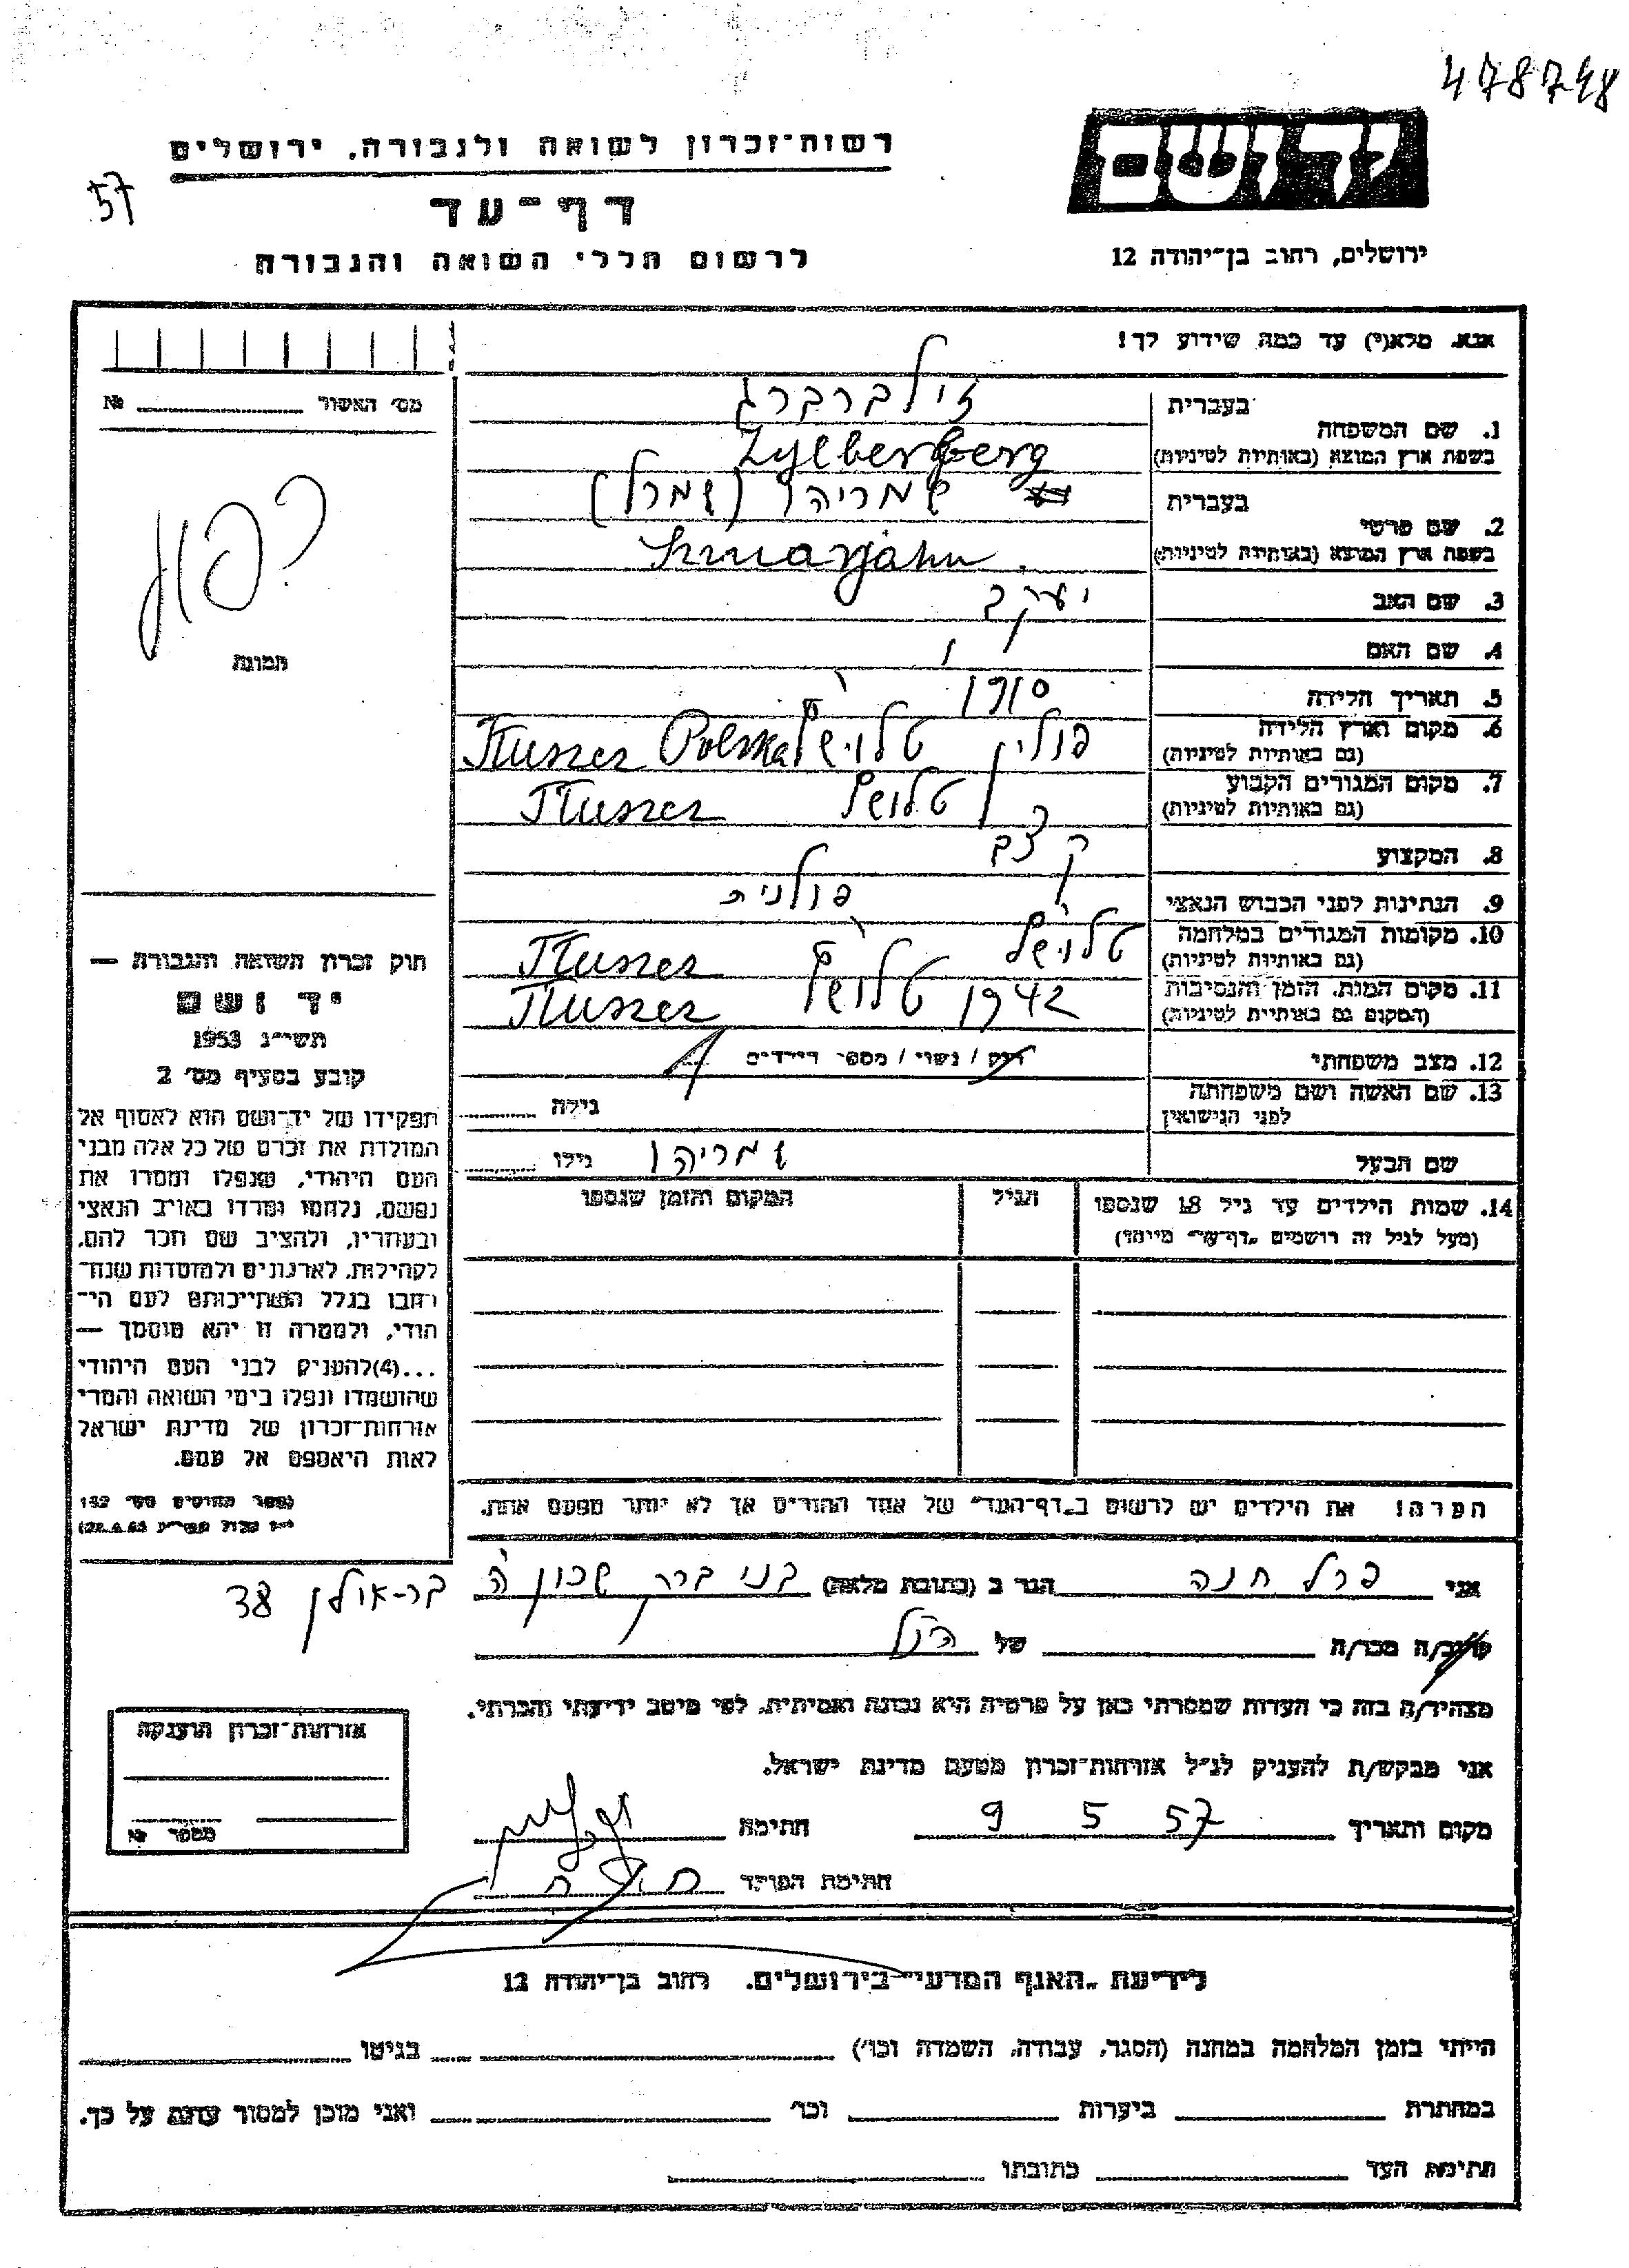 478748
רשות־זכרון לשואה ולגבורה, ירושלים
57
דף־עד
לרשום חללי השואה והגבורה
יד ושם
ירושלים, רחוב בן־יהודה 12
אנא, מלא(י) עד כמה שידוע לך!
מס׳ האשור № 
1. שם המשפחה
בעברית זילברברג
בשפת ארץ המוצא (באותיות לטיניות) Zylberberg
2. שם פרטי
בעברית שמריהו (שמרל)
בשפת ארץ המוצא (באותיות לטיניות) Szmarjahu
3. שם האב יעקב
4. שם האם
5. תאריך הלידה 1910
6. מקום וארץ הלידה
(גם באותיות לטיניות) פולין Tluszcz Polska
7. מקום המגורים הקבוע
(גם באותיות לטיניות) Tluszcz
8. המקצוע קצב
9. הנתינות לפני הכבוש הנאצי פולנית
10. מקומות המגורים במלחמה
(גם באותיות לטיניות) Tluszcz
11. מקום המות, הזמן והנסיבות
(המקום גם באותיות לטיניות) 1942 Tluszcz
12. מצב משפחתי רוק / נשוי / מספר הילדים
13. שם האשה ושם משפחתה
לפני הנישואין גילה
שם הבעל שמריהו גילו
14. שמות הילדים עד גיל 18 שנספו
(מעל לגיל זה רושמים "דף־עד" מיוחד)
הגיל
המקום והזמן שנספו
תמונה
חוק זכרון השואה והגבורה —
יד ושם
תשי״ג 1953
קובע בסעיף מס׳ 2
תפקידו של יד־ושם הוא לאסוף אל
המולדת את זכרם של כל אלה מבני
העם היהודי, שנפלו ומסרו את
נפשם, נלחמו ומרדו באויב הנאצי
ובעוזריו, ולהציב שם וזכר להם,
לקהילות, לארגונים ולמוסדות שנח־
רבו בגלל השתייכותם לעם הי־
הודי, ולמטרה זו יהא מוסמך —
...(4) להעניק לבני העם היהודי
שהושמדו ונפלו בימי השואה והמרי
אזרחות־זכרון של מדינת ישראל
לאות היאספם אל עמם.
(ספר החוקים מס׳ 132
הערה! את הילדים יש לרשום ב"דף־העד" של אחד ההורים אך לא יותר מפעם אחת.
אני פרל חנה הגר ב (כתובת מלאה) בני ברק שכון ה
בר־אילן 38
קרוב/ה מכר/ה של הנ״ל
מצהיר/ה בזה כי העדות שמסרתי כאן על פרטיה היא נכונה ואמיתית, לפי מיטב ידיעתי והכרתי.
אני מבקש/ת להעניק לנ״ל אזרחות־זכרון מטעם מדינת ישראל.
מקום ותאריך 9 5 57 חתימה
חתימת הפוקד
אזרחות־זכרון הוענקה
מספר №
לידיעת "האגף המדעי" בירושלים, רחוב בן־יהודה 12
הייתי בזמן המלחמה במחנה (הסגר, עבודה, השמדה וכו׳) בגיטו
במחתרת ביערות וכו׳ ואני מוכן למסור עדות על כך.
חתימת העד כתובתו